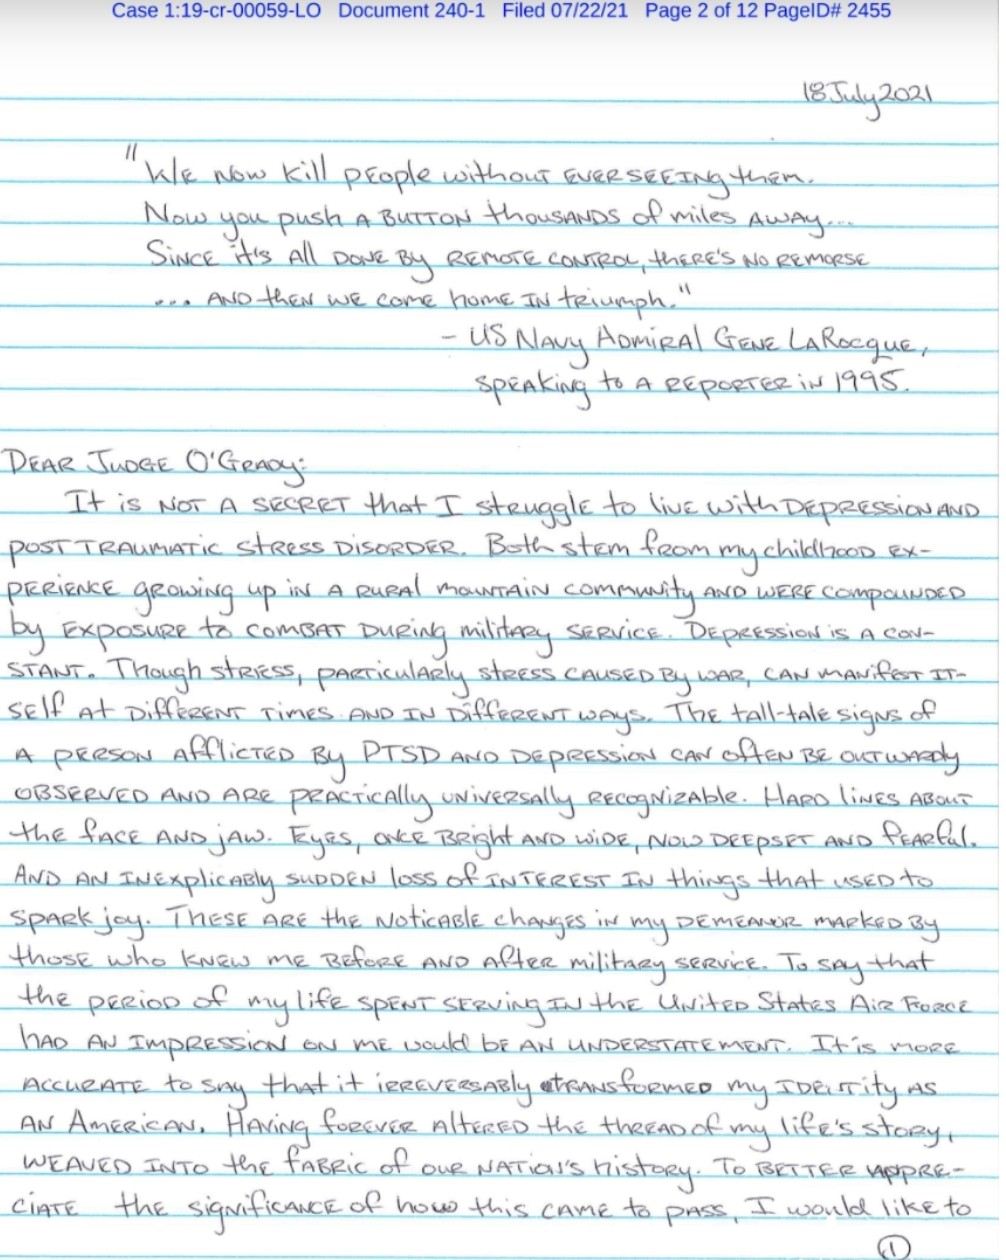 Case 1:19-cr-00059-LO Document 240-1 Filed 07/22/21 Page 2 of 12 PageID# 2455
18 July 2021
"We now kill people without ever seeing them.
Now you push a button thousands of miles away...
Since it's all done by remote control, there's no remorse
... and then we come home in triumph."
- US Navy Admiral Gene LaRocque,
speaking to a reporter in 1995.
Dear Judge O'Grady:
It is not a secret that I struggle to live with depression and
post traumatic stress disorder. Both stem from my childhood ex-
perience growing up in a rural mountain community and were compounded
by exposure to combat during military service. Depression is a con-
stant. Though stress, particularly stress caused by war, can manifest it-
self at different times and in different ways. The tall-tale signs of
a person afflicted by PTSD and depression can often be outwardly
observed and are practically universally recognizable. Hard lines about
the face and jaw. Eyes, once bright and wide, now deepset and fearful.
And an inexplicably sudden loss of interest in things that used to
spark joy. These are the noticable changes in my demeanor marked by
those who knew me before and after military service. To say that
the period of my life spent serving in the United States Air Force
had an impression on me would be an understatement. It is more
accurate to say that it irreversably transformed my identity as
an American. Having forever altered the thread of my life's story,
weaved into the fabric of our nation's history. To better appre-
ciate the significance of how this came to pass, I would like to
1